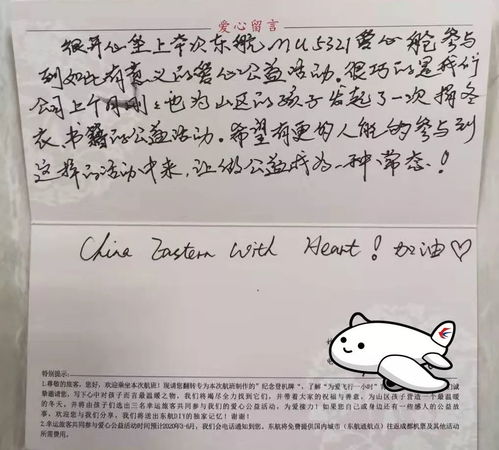 爱心留言
很开心坐上本次东航MU5321爱心舱参与
到如此有意义的爱心公益活动。很巧的是我们
公司上个月刚刚也为山区的孩子发起了一次捐冬
衣、书籍的公益活动。希望有更多的人能够参与到
这样的活动中来，让做公益成为一种常态！
China Eastern With Heart！加油♡
特别提示：
1.尊敬的旅客，您好，欢迎乘坐本次航班！现请您翻转专为本次航班制作的"纪念登机牌"，了解"为爱飞行一小时"
挚邀请您，写下心中对孩子而言最温暖之物，我们将竭尽全力找到它们，并带着大家的祝福与善意，为山区孩子营造一个最温暖
的冬天。并将由孩子们选出三名幸运旅客共同参与我们的爱心公益活动，为爱接力！如果您自己或身边还有一些感人的公益故
事，欢迎您与我们分享，我们将送出东航DIY的独家记忆！谢谢！
2.幸运旅客共同参与爱心公益活动时间预计2020年3-6月，我们会电话通知到您，东航将免费提供国内城市（东航通航点）往返成都机票及其他活动
所需费用。